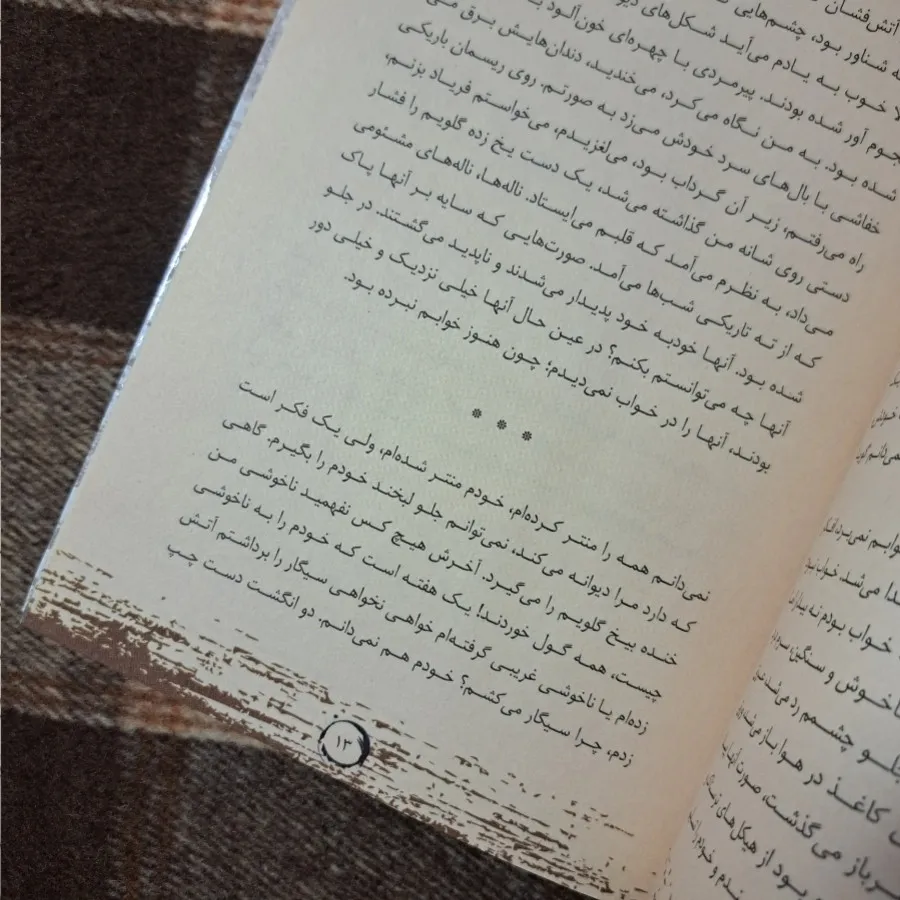 آتش‌فشان
شناور بود، چشم‌هایی
خوب به یادم می‌آید شکل‌های
آور شده بودند. پیرمردی با چهره‌ای خون‌آلود
شده بود. به من نگاه می‌کرد، می‌خندید، دندان‌هایش برق
خفاشی با بال‌های سرد خودش می‌زد به صورتم. روی ریسمان باریکی
راه می‌رفتم، زیر آن گرداب بود، می‌لغزیدم، می‌خواستم فریاد بزنم،
دستی روی شانه من گذاشته می‌شد، یک دست یخ زده گلویم را فشار
می‌داد، به نظرم می‌آمد که قلبم می‌ایستاد. ناله‌ها، ناله‌های مشئومی
که از ته تاریکی شب‌ها می‌آمد. صورت‌هایی که سایه بر آنها پاک
شده بود. آنها خودبه خود پدیدار می‌شدند و ناپدید می‌گشتند. در جلو
آنها چه می‌توانستم بکنم؟ در عین حال آنها خیلی نزدیک و خیلی دور
بودند، آنها را در خواب نمی‌دیدم؛ چون هنوز خوابم نبرده بود.
* * *
نمی‌دانم همه را منتر کرده‌ام، خودم منتر شده‌ام، ولی یک فکر است
که دارد مرا دیوانه می‌کند، نمی‌توانم جلو لبخند خودم را بگیرم. گاهی
خنده بیخ گلویم را می‌گیرد. آخرش هیچ کس نفهمید ناخوشی من
چیست، همه گول خوردند! یک هفته است که خودم را به ناخوشی
زده‌ام یا ناخوشی غریبی گرفته‌ام خواهی نخواهی سیگار را برداشتم آتش
زدم، چرا سیگار می‌کشم؟ خودم هم نمی‌دانم. دو انگشت دست چپ
۱۳
خواب بودم نه بیدار
ناخوش و سنگین
جلو چشمم رد می‌شد
کاغذ در هوا باز می‌شد
سرباز می‌گذشت، صورت آنها
بود از هیکل‌های